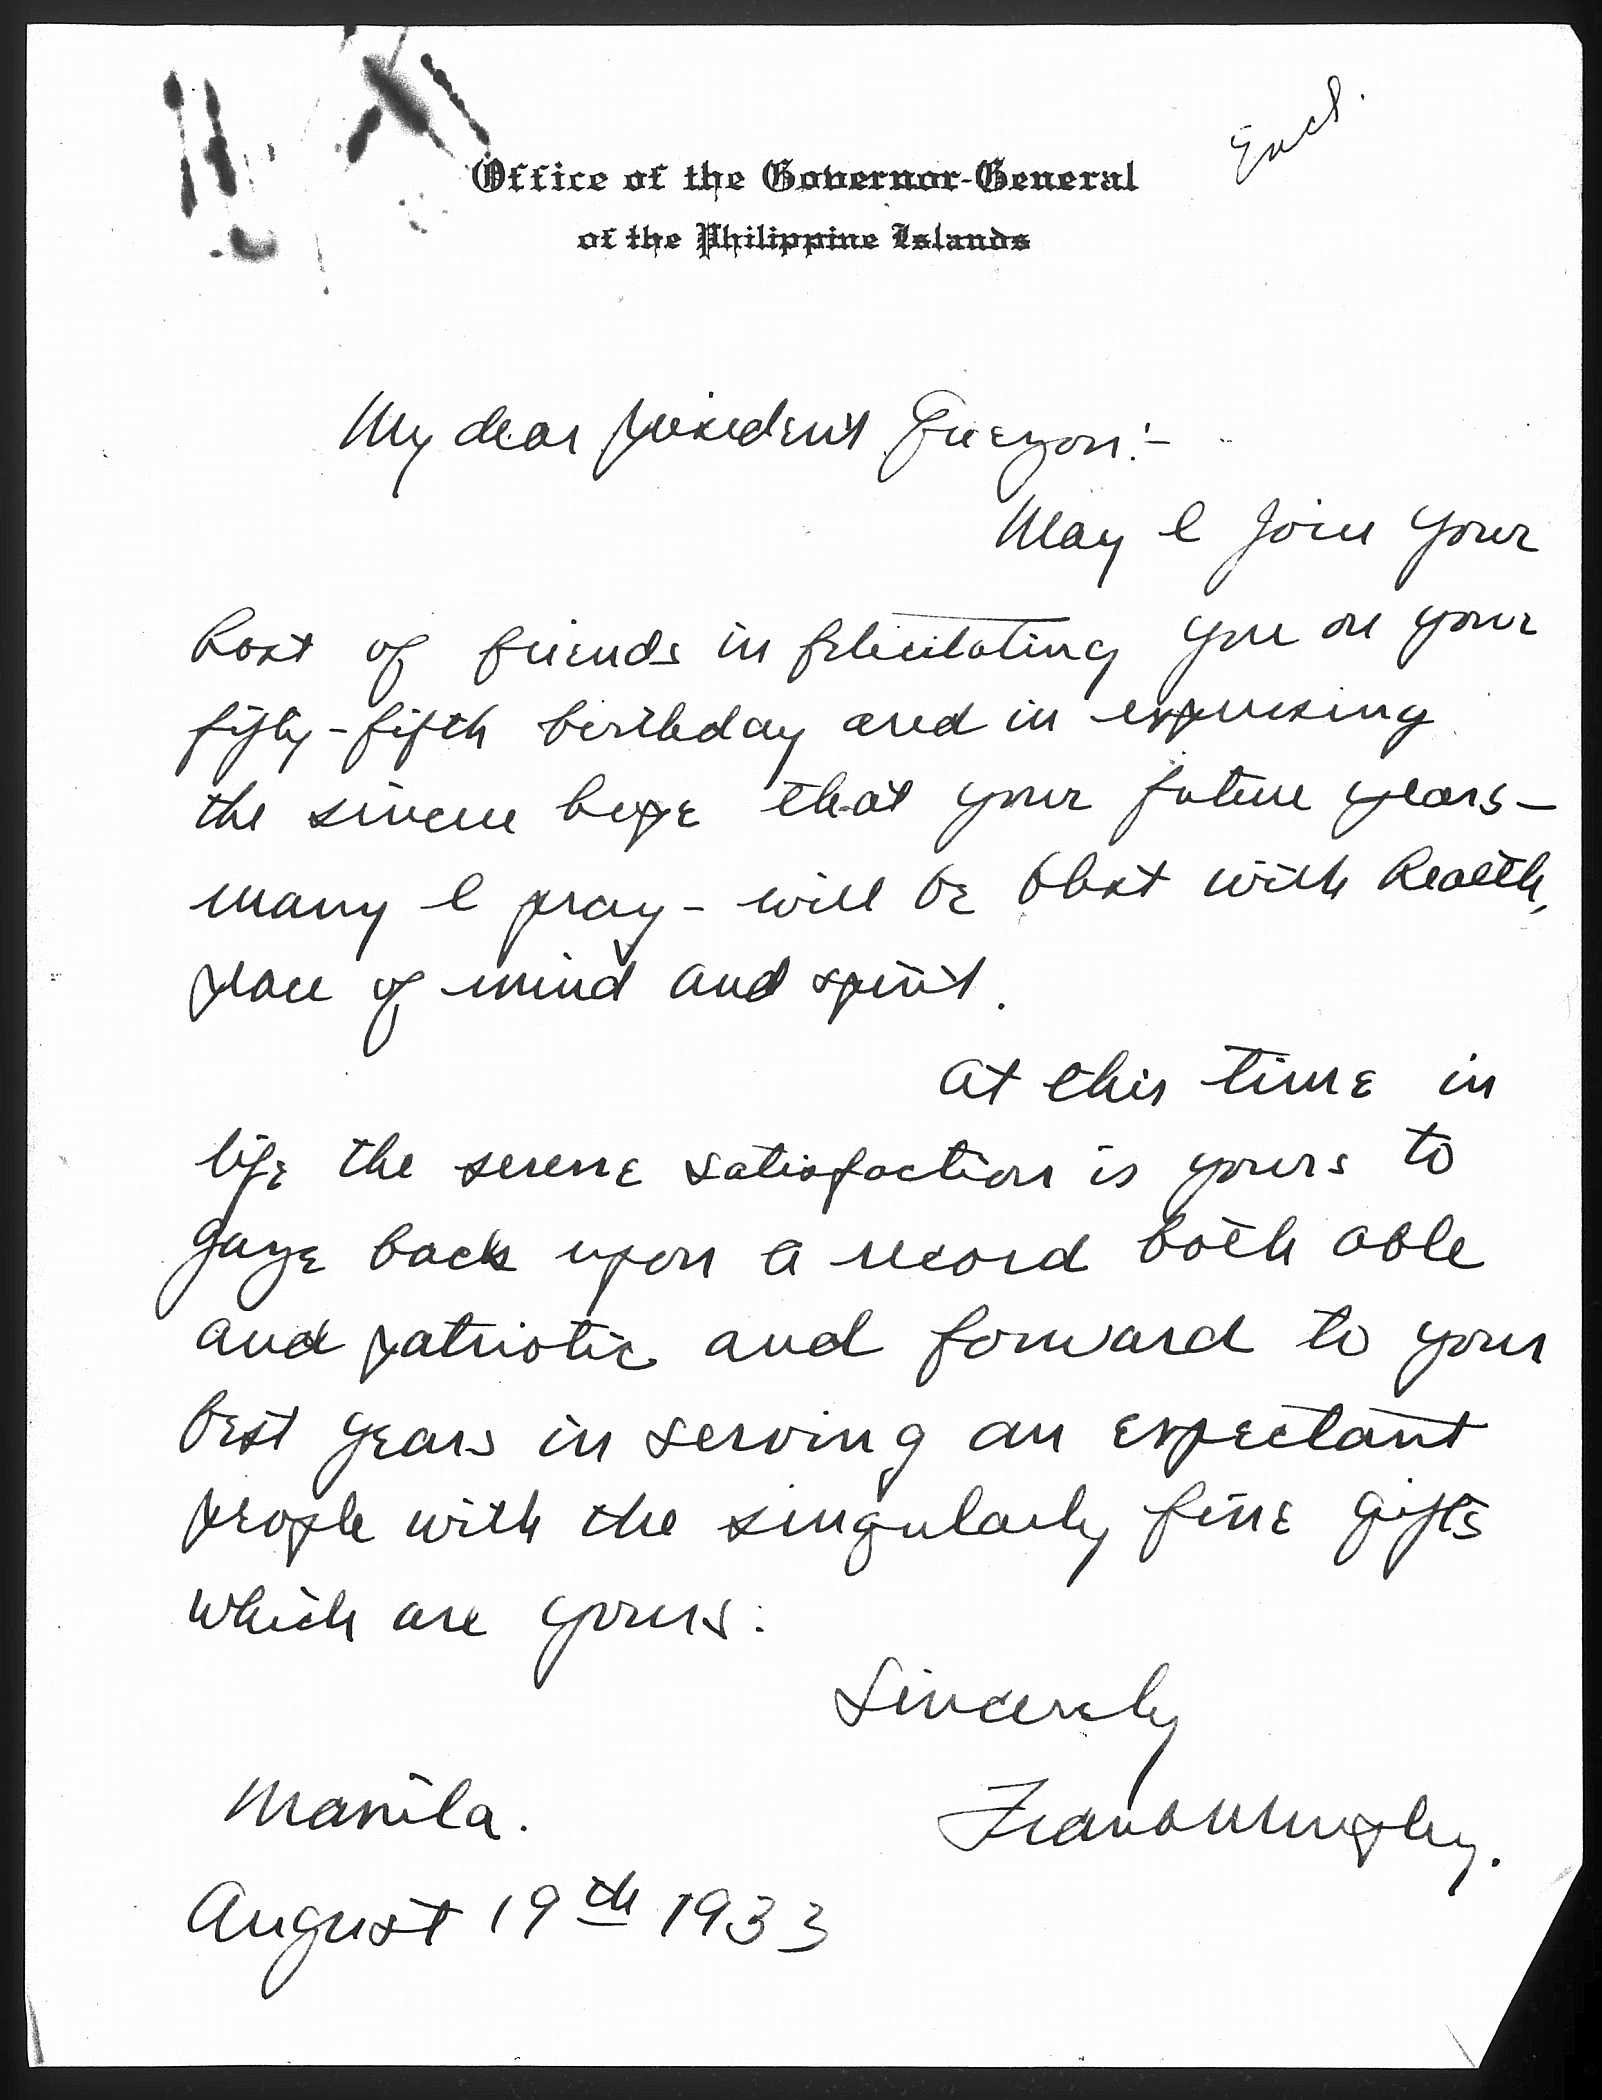 Encl.
Office of the Governor-General
of the Philippine Islands
My dear President Quezon:-
May I join your
host of friends in felicitating you on your
fifty-fifth birthday and in expressing
the sincere hope that your future years-
many I pray - will be blest with health,
peace of mind and spirit.
At this time in
life the serene satisfaction is yours to
gaze back upon a record both able
and patriotic and forward to your
best years in serving an expectant
people with the singularly fine gifts
which are yours.
Sincerely
Manila.
Frank Murphy.
August 19th 1933